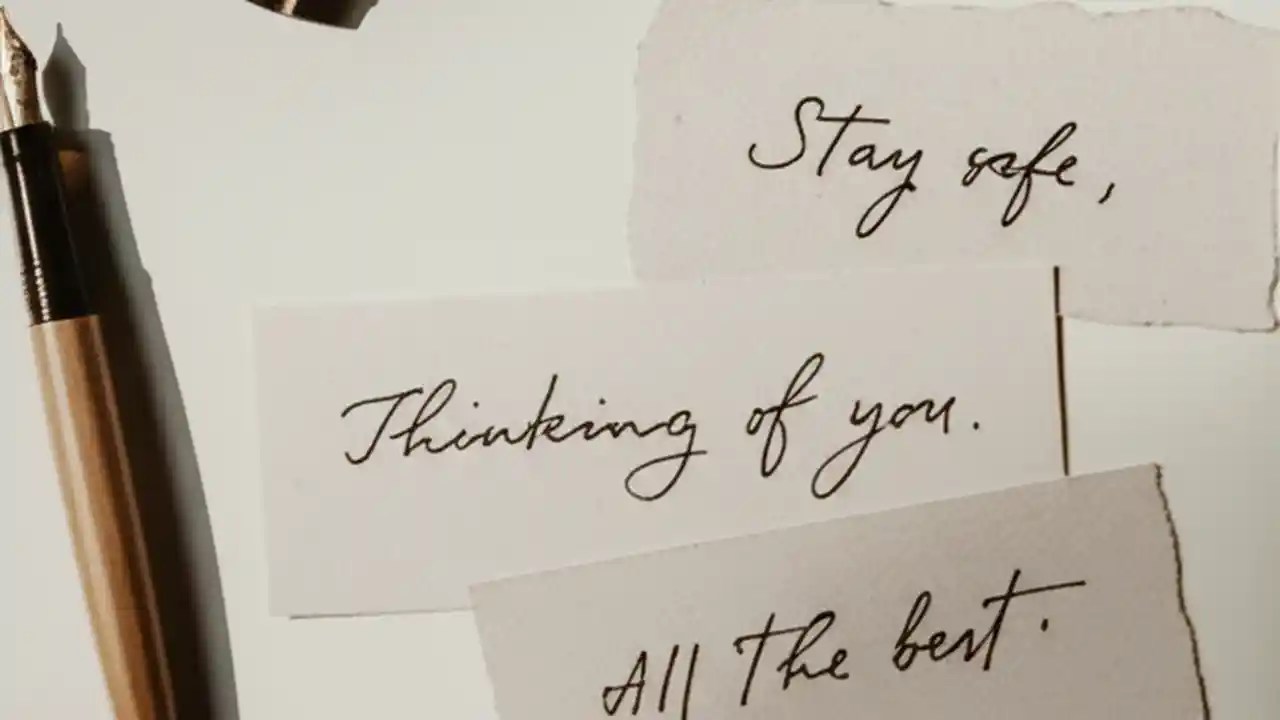 Stay safe,
Thinking of you.
All The best.